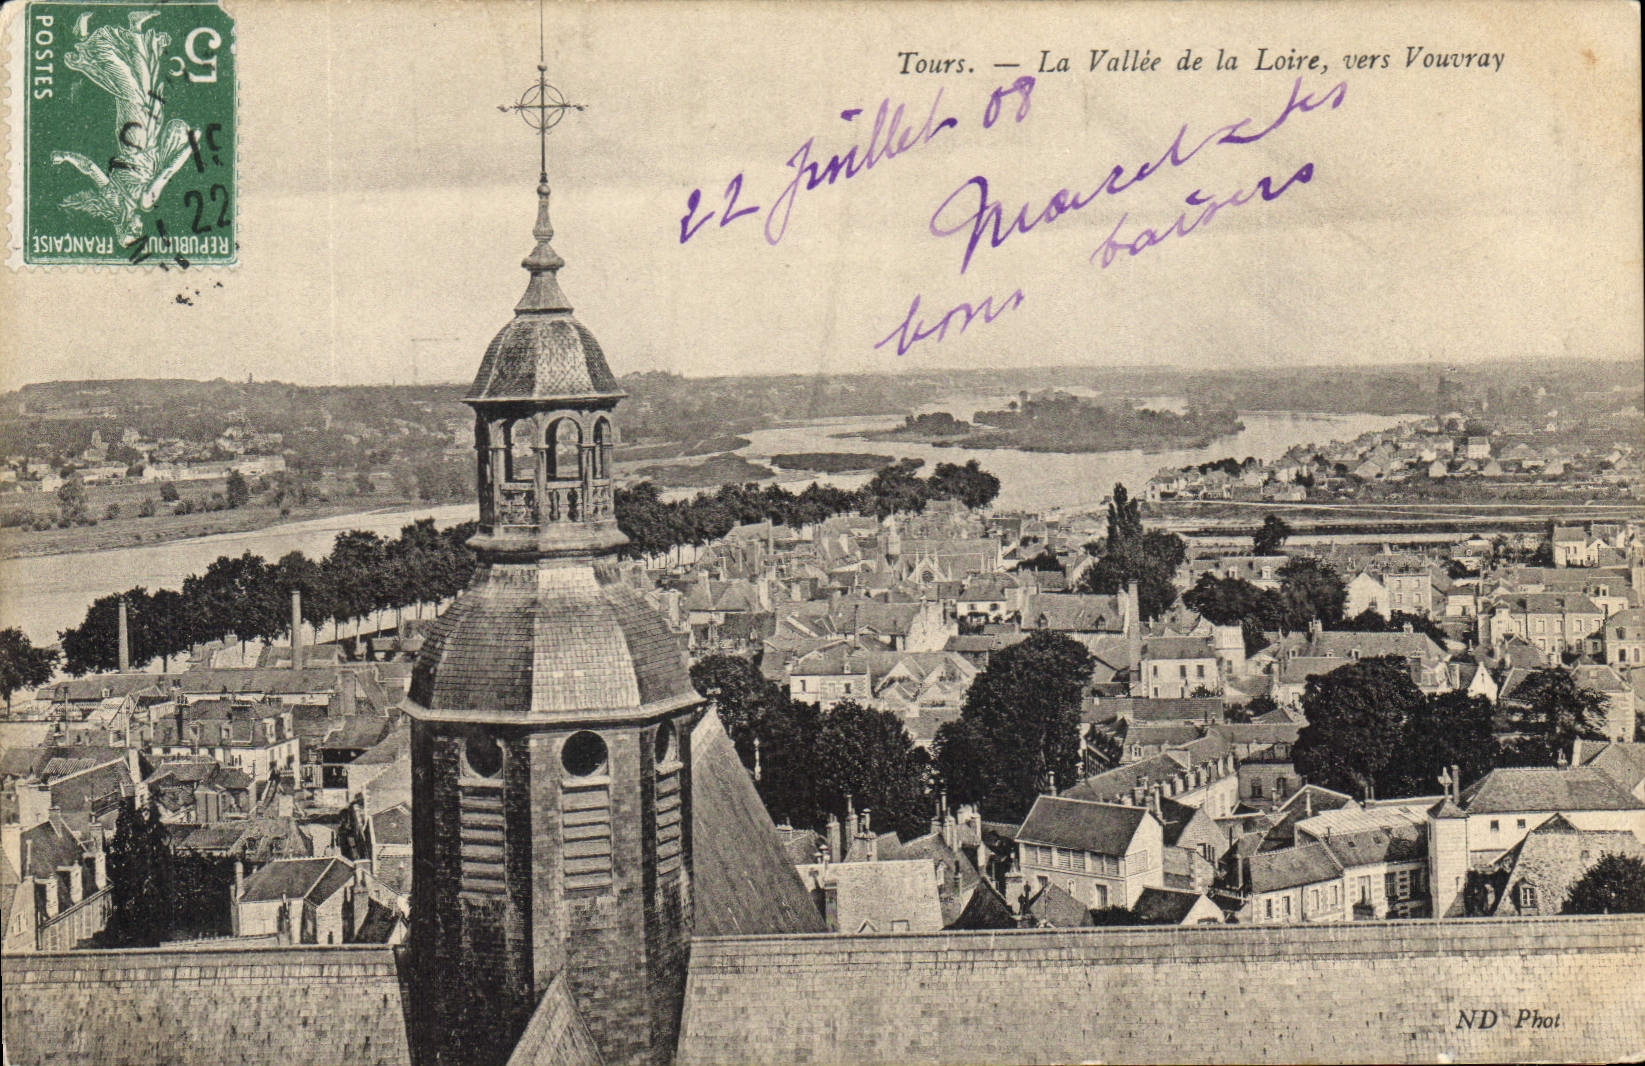 5c
POSTES
REPUBLIQUE FRANÇAISE
22
Tours. — La Vallée de la Loire, vers Vouvray
22 Juillet 08
bons baisers
ND Phot